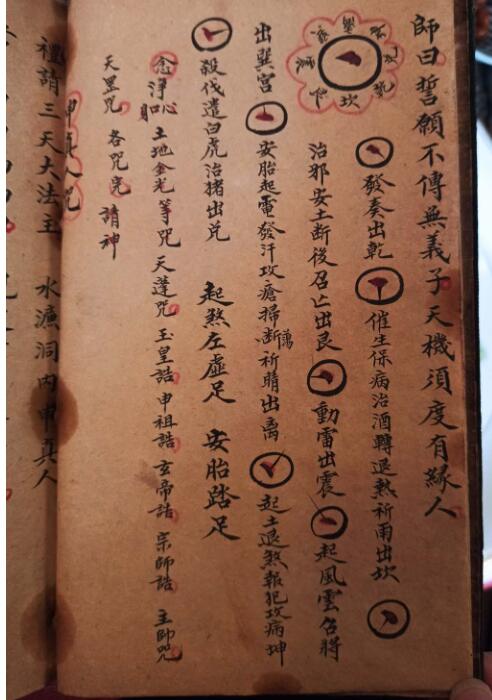 師曰誓願不傳無義子天機須度有緣人
震
坎
乾
發奏出乾 催生保病治酒轉退熱祈雨出坎
治邪安土斷後召亡出艮 動雷出震 起風雲召將
出巽宮 安胎起電發汗攻瘡掃断祈晴出离 起土退煞報犯攻病坤
殺伐遣白虎治猪出兌 起煞左虛足 安胎踏足
念淨心口身土地金光等咒 天蓬咒 玉皇誥 申祖誥 玄帝誥 宗師誥 主帥咒
天星咒 各咒完 請神
申真人咒
禮請三天大法主 水濂洞內申真人